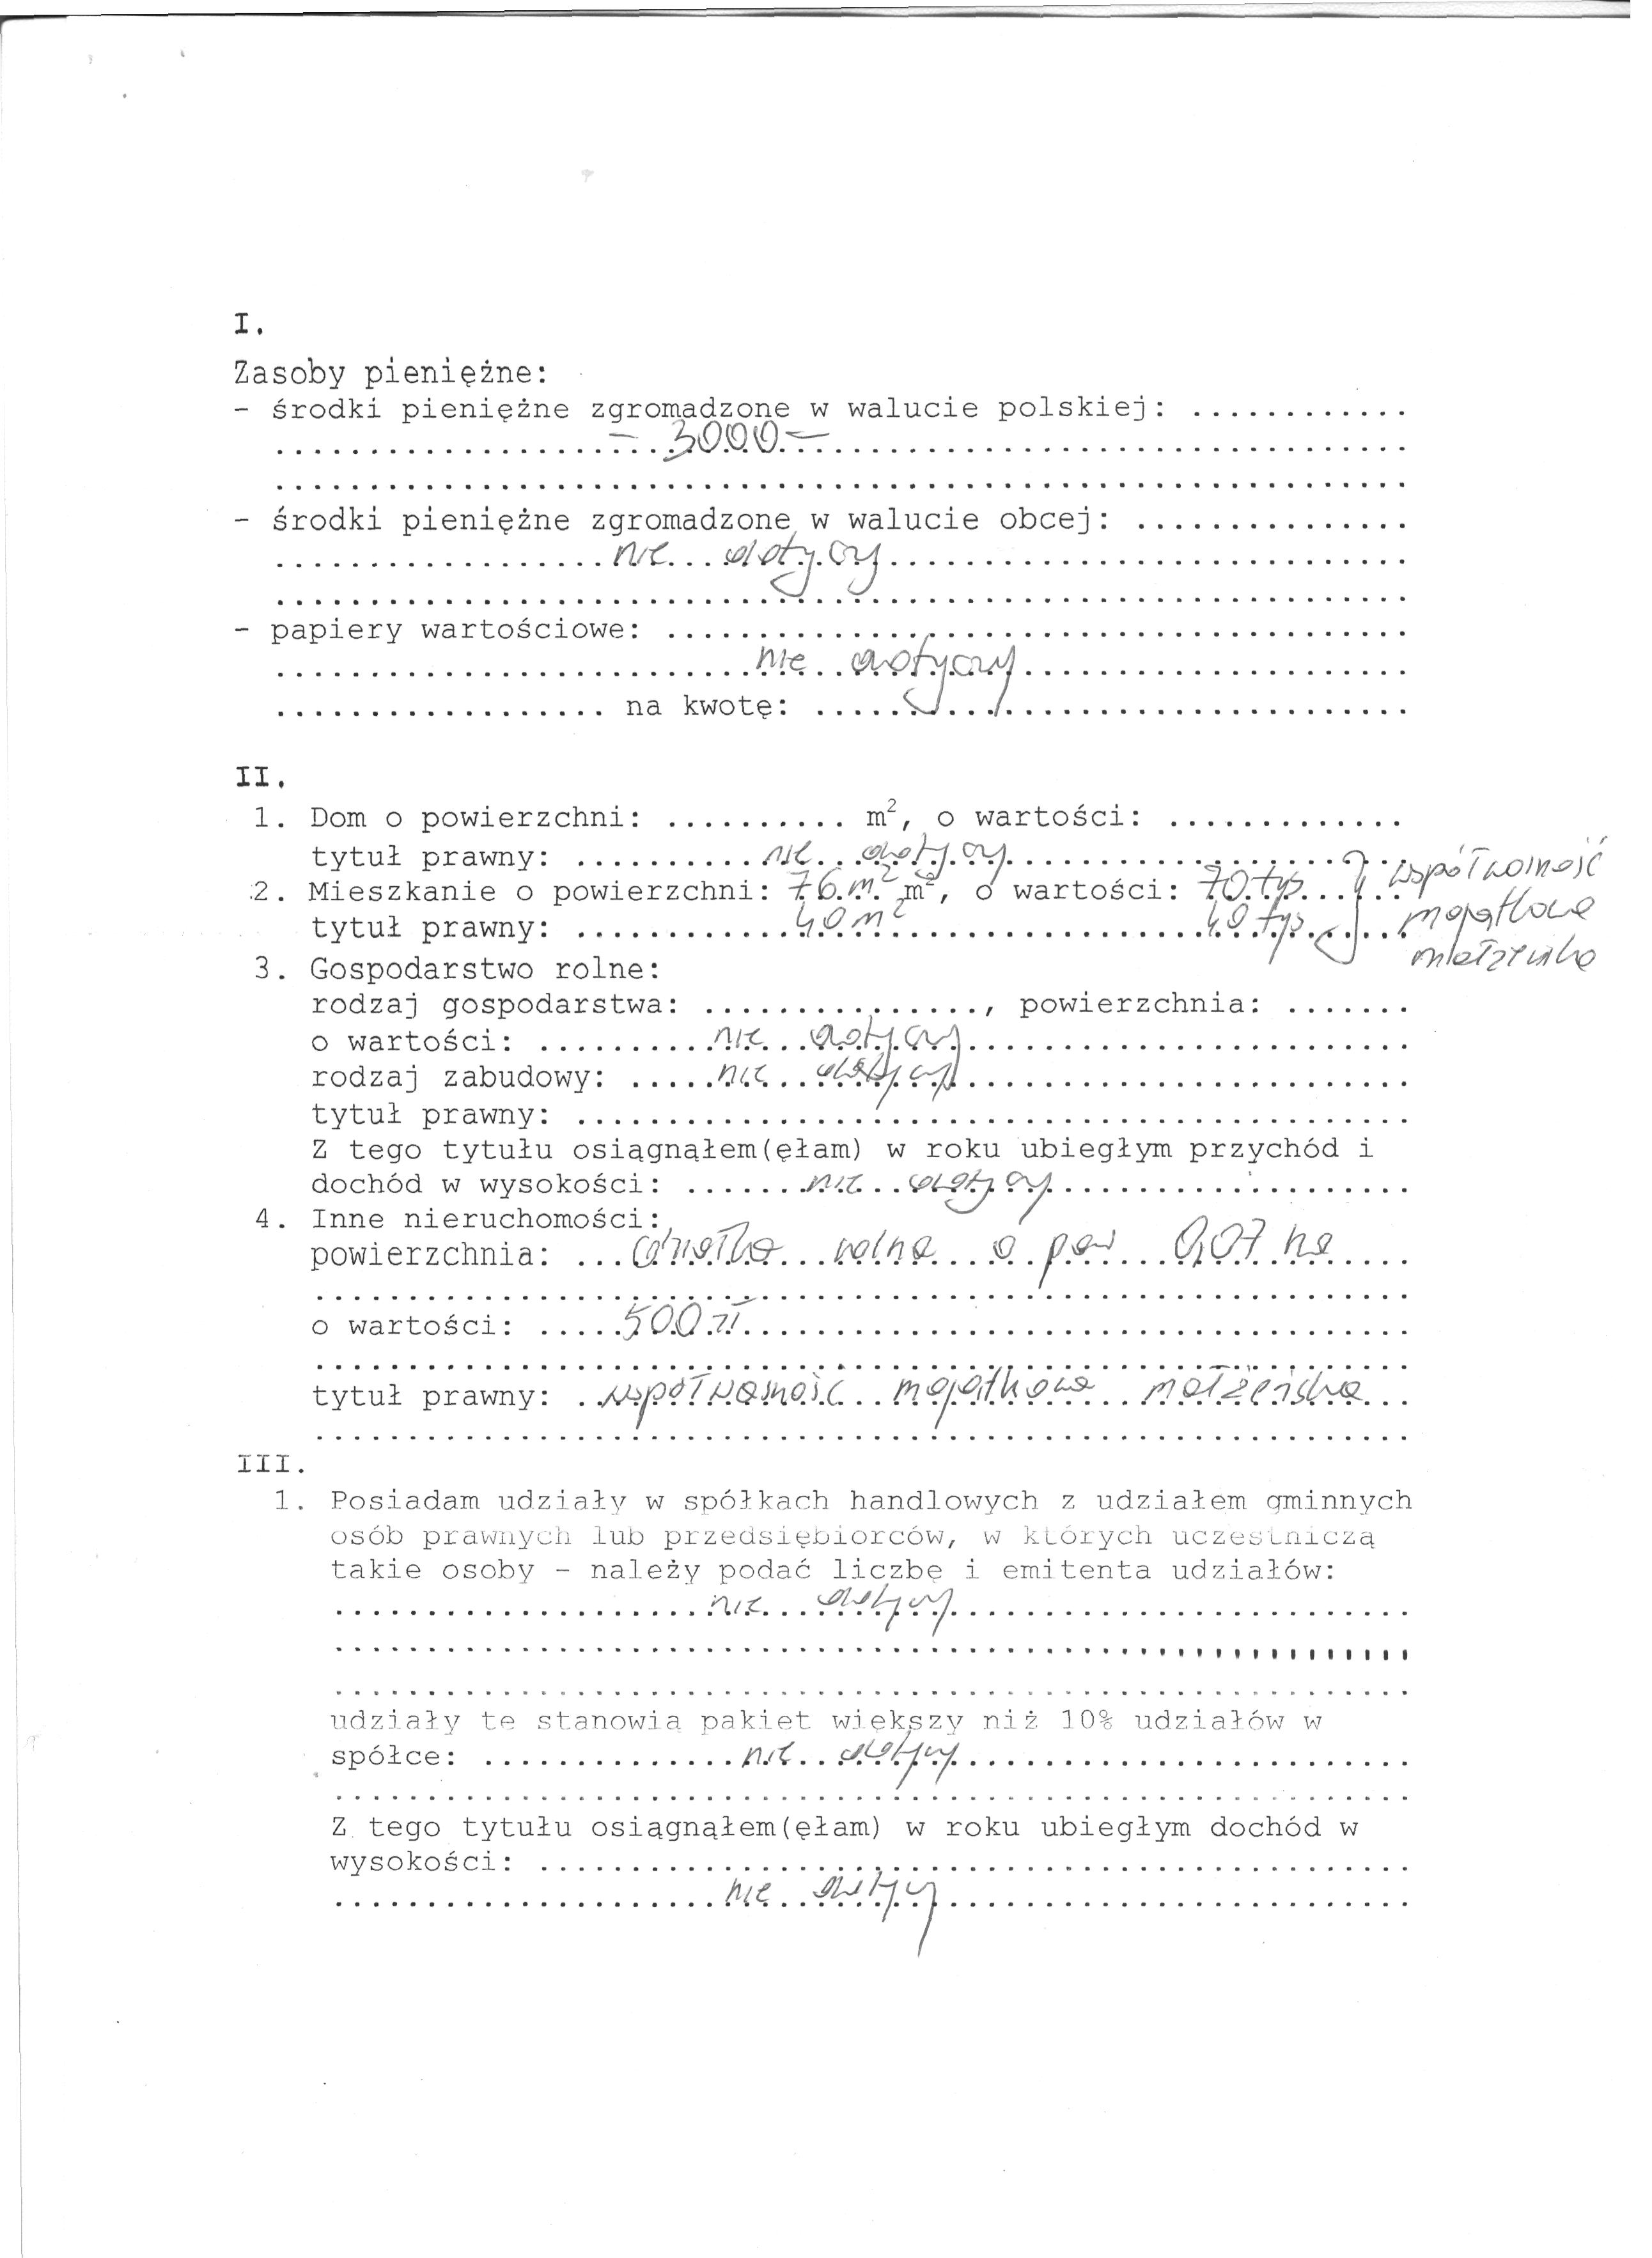 I.
Zasoby pieniężne:
- środki pieniężne zgromadzone w walucie polskiej: ............
- 3000.-
- środki pieniężne zgromadzone w walucie obcej: ...............
nie dotyczy
- papiery wartościowe: ........................................
nie dotyczy
.................. na kwotę: ................................
II.
1. Dom o powierzchni: ........... m², o wartości: ..............
tytuł prawny: nie dotyczy
2. Mieszkanie o powierzchni: 76 m² m², o wartości: 70 tyś } współwłasność
tytuł prawny: 40 m² 40 tyś } majątkowa
małżeńska
3. Gospodarstwo rolne:
rodzaj gospodarstwa: ..............., powierzchnia: .......
o wartości: nie dotyczy
rodzaj zabudowy: nie dotyczy
tytuł prawny: .............................................
Z tego tytułu osiągnąłem(ęłam) w roku ubiegłym przychód i
dochód w wysokości: nie dotyczy
4. Inne nieruchomości:
powierzchnia: działka rolna o pow 0,07 ha
o wartości: 500 zł
tytuł prawny: współwłasność majątkowa małżeńska
III.
1. Posiadam udziały w spółkach handlowych z udziałem gminnych
osób prawnych lub przedsiębiorców, w których uczestniczą
takie osoby - należy podać liczbę i emitenta udziałów:
nie dotyczy
udziały te stanowią pakiet większy niż 10% udziałów w
spółce: nie dotyczy
Z tego tytułu osiągnąłem(ęłam) w roku ubiegłym dochód w
wysokości: ...............................................
nie dotyczy